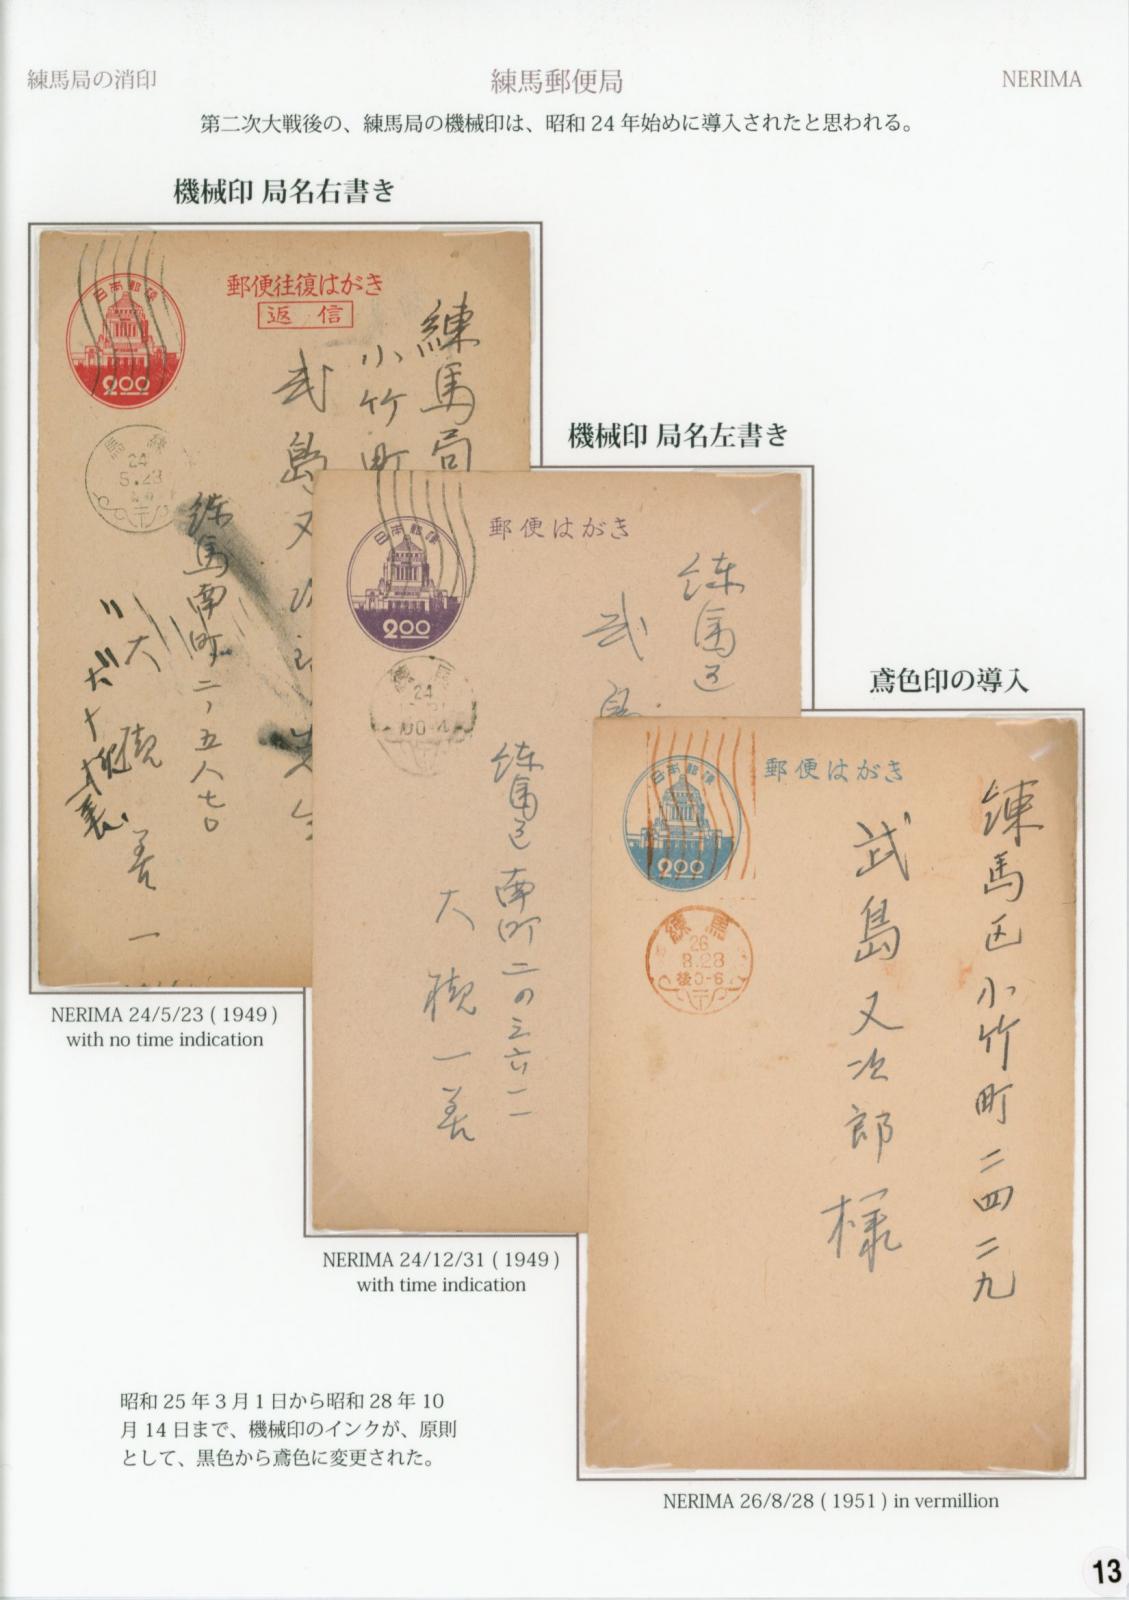 練馬局の消印
練馬郵便局
NERIMA
第二次大戦後の、練馬局の機械印は、昭和 24 年始めに導入されたと思われる。
機械印 局名右書き
日本郵便
2.00
郵便往復はがき
返信
練馬局
小竹町
武島又次郎
馬練
24
5.23
練馬南町二ノ五八七〇
大槻善一
NERIMA 24/5/23 ( 1949 )
with no time indication
機械印 局名左書き
日本郵便
2.00
郵便はがき
練馬区
武島
24
練馬区南町二の三六一一
大槻一善
NERIMA 24/12/31 ( 1949 )
with time indication
鳶色印の導入
日本郵便
2.00
郵便はがき
練馬
26
8.28
後0-6
練馬区小竹町二四二九
武島又次郎様
NERIMA 26/8/28 ( 1951 ) in vermillion
昭和 25 年 3 月 1 日から昭和 28 年 10
月 14 日まで、機械印のインクが、原則
として、黒色から鳶色に変更された。
13